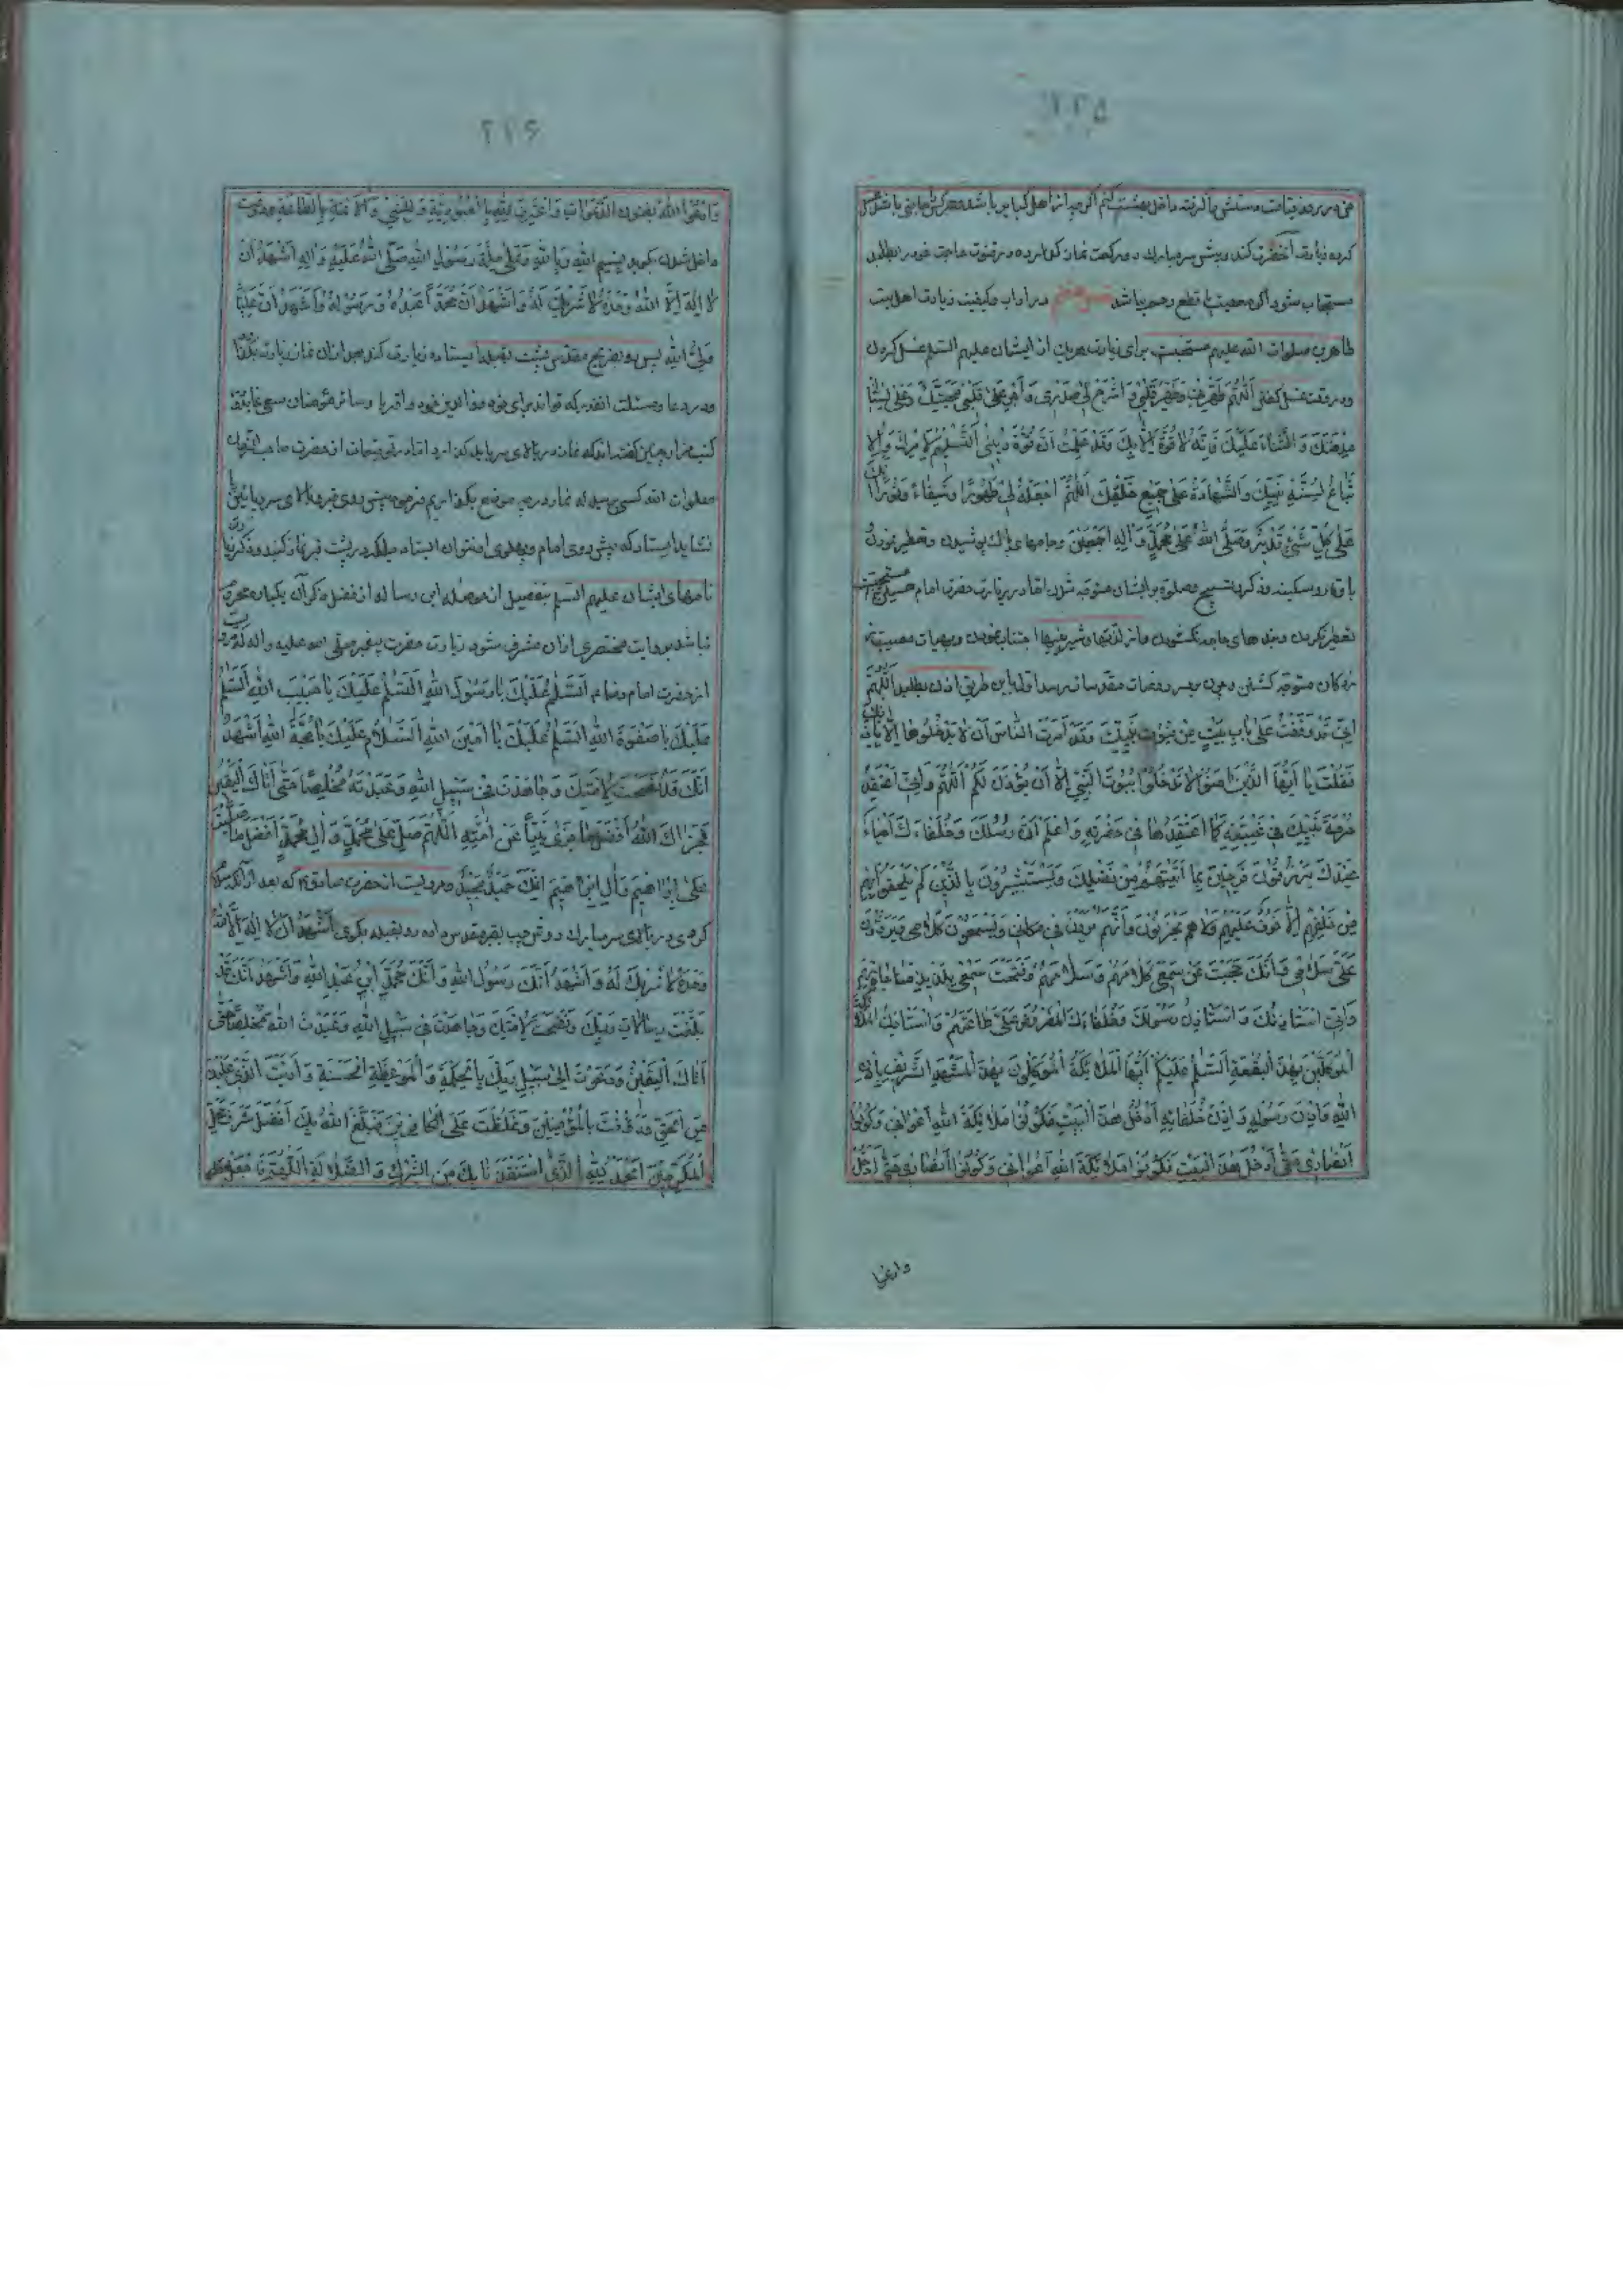 ۲۲۵
من در روز قیامت دستش را گرفته داخل بهشت کنم اگرچه از اهل کبایر باشد هر کرا حاجتی باشد غسل
کرده زیارت آنحضرت کند و پیش سر مبارک دو رکعت نماز کذارده در قنوت حاجت خود را بطلبد
مستجاب شود اگر معصیت یا قطع رحم نباشد در آداب و کیفیت زیارت اهل بیت
طاهرین صلوات الله علیهم مستحبست برای زیارت هر یک از ایشان علیهم السلم غسل کردن
و در وقت غسل گفتن اَللّٰهُمَّ طَهِّرْنِی وَطَهِّرْ قَلْبِی وَاشْرَحْ لِی صَدْرِی وَاَجْرِ عَلٰی قَلْبِی مَحَبَّتَکَ وَعَلٰی لِسٰانِی
مِدْحَتَکَ وَالثَّنٰاءَ عَلَیْکَ فَاِنَّهُ لٰا قُوَّةَ اِلّٰا بِکَ وَقَدْ عَلِمْتُ اَنَّ قُوَّةَ دِینِی اَلتَّسْلِیمُ لِاَمْرِکَ وَالْاِ
تِّبٰاعُ لِسُنَّةِ نَبِیِّکَ وَالشَّهٰادَةُ عَلٰی جَمِیعِ خَلْقِکَ اَللّٰهُمَّ اجْعَلْهُ لِی طَهُورًا وَشِفٰاءً وَنُورًا اِنَّکَ
عَلٰی کُلِّ شَیْءٍ قَدِیرٌ وَصَلَّی اللّٰهُ عَلٰی مُحَمَّدٍ وَاٰلِهِ اَجْمَعِینَ و جامهای پاک پوشیدن و تعطیر نمودن
با وقار و سکینه و ذکر و تسبیح و صلوة بر ایشان متوجه شدن اما در زیارت حضرت امام حسین ع مستحبست
تعطیر نکردن و بندهای جامه نگشودن و از لذیذها و شیرینیها اجتناب نمودن و بهیأت مصیبت
زدکان متوجه کشتن و چون بدر روضات مقدسات رسد اول باین طریق اذن بطلبد اَللّٰهُمَّ
اِنِّی قَدْ وَقَفْتُ عَلٰی بٰابِ بَیْتٍ مِنْ بُیُوتِ نَبِیِّکَ وَقَدْ اَمَرْتَ النّٰاسَ اَنْ لٰا یَدْخُلُوهٰا اِلّٰا بِاِذْنِکَ
فَقُلْتَ یٰا اَیُّهَا الَّذِینَ اٰمَنُوا لٰا تَدْخُلُوا بُیُوتَ النَّبِیِّ اِلّٰا اَنْ یُؤْذَنَ لَکُمْ اَللّٰهُمَّ وَاِنِّی اَعْتَقِدُ
حُرْمَةَ نَبِیِّکَ فِی غَیْبَتِهِ کَمٰا اَعْتَقِدُهٰا فِی حَضْرَتِهِ وَاَعْلَمُ اَنَّ رُسُلَکَ وَخُلَفٰاءَکَ اَحْیٰاءٌ
عِنْدَکَ یُرْزَقُونَ فَرِحِینَ بِمٰا اٰتَیْتَهُمْ مِنْ فَضْلِکَ وَیَسْتَبْشِرُونَ بِالَّذِینَ لَمْ یَلْحَقُوا بِهِمْ
مِنْ خَلْفِهِمْ اَلّٰا خَوْفٌ عَلَیْهِمْ وَلٰا هُمْ یَحْزَنُونَ وَاَنَّهُمْ یَرَوْنَ مَکٰانِی وَیَسْمَعُونَ کَلٰامِی وَیَرُدُّونَ
عَلَیَّ سَلٰامِی وَاَنَّکَ حَجَبْتَ عَنْ سَمْعِی کَلٰامَهُمْ وَسَلٰامَهُمْ وَفَتَحْتَ سَمْعِی بِلَذِیذِ مُنٰاجٰاتِهِمْ
وَاِنِّی اَسْتَأْذِنُکَ وَاَسْتَأْذِنُ رَسُولَکَ وَخُلَفٰاءَکَ الْمَفْرُوضَ عَلَیَّ طٰاعَتُهُمْ وَاَسْتَأْذِنُ الْمَلٰائِکَةَ
الْمُوَکَّلِینَ بِهٰذِهِ الْبُقْعَةِ اَلسَّلٰمُ عَلَیْکُمْ اَیُّهَا الْمَلٰائِکَةُ الْمُوَکَّلُونَ بِهٰذَا الْمَشْهَدِ الشَّرِیفِ بِاِذْنِ
اللّٰهِ وَاِذْنِ رَسُولِهِ وَاِذْنِ خُلَفٰائِهِ اَدْخُلُ هٰذَا الْبَیْتَ فَکُونُوا مَلٰائِکَةَ اللّٰهِ اَعْوٰانِی وَکُونُوا
اَنْصٰارِی حَتّٰی اَدْخُلَ هٰذَا الْبَیْتَ فَکُونُوا مَلٰائِکَةَ اللّٰهِ اَعْوٰانِی وَکُونُوا اَنْصٰارِی حَتّٰی اَدْخُلَ
۲۲۶
الله بفنون الدعوات واعترف لله بالعبودیة وبالطاعة
داخل شدن بگوید بِسْمِ اللّٰهِ وَبِاللّٰهِ وَعَلٰی مِلَّةِ رَسُولِ اللّٰهِ صَلَّی اللّٰهُ عَلَیْهِ وَاٰلِهِ اَشْهَدُ اَنْ
لٰا اِلٰهَ اِلَّا اللّٰهُ وَحْدَهُ لٰا شَرِیکَ لَهُ وَاَشْهَدُ اَنَّ مُحَمَّدًا عَبْدُهُ وَرَسُولُهُ وَاَشْهَدُ اَنَّ عَلِیًّا
وَلِیُّ اللّٰهِ پس رو بضریح مقدس پشت بقبله ایستاده زیارت کند بعد از آن نماز زیارت
و در دعا و مسئلت انقدر که تواند برای خود و والدین خود و اقربا و سایر مؤمنان سعی نماید
صلوات الله کسی
نشاید ایستاد که پیش روی امام و پهلوی او نتوان ایستاد بلکه در پشت قبر نماز کنند
نامهای ایشان علیهم السلم بتفصیل از حوصله این رساله
نباشد بروایت مختصری از آن مشرف شود زیارت حضرت پیغمبر صلی الله علیه واله
از حضرت امام رضا ع اَلسَّلٰمُ عَلَیْکَ یٰا رَسُولَ اللّٰهِ اَلسَّلٰمُ عَلَیْکَ یٰا حَبِیبَ اللّٰهِ اَلسَّلٰمُ
عَلَیْکَ یٰا صَفْوَةَ اللّٰهِ اَلسَّلٰمُ عَلَیْکَ یٰا اَمِینَ اللّٰهِ اَلسَّلٰامُ عَلَیْکَ یٰا حُجَّةَ اللّٰهِ اَشْهَدُ
اَنَّکَ قَدْ نَصَحْتَ لِاُمَّتِکَ وَجٰاهَدْتَ فِی سَبِیلِ اللّٰهِ وَعَبَدْتَهُ مُخْلِصًا حَتّٰی اَتٰاکَ الْیَقِینُ
فَجَزٰاکَ اللّٰهُ اَفْضَلَ مٰا جَزٰی نَبِیًّا عَنْ اُمَّتِهِ اَللّٰهُمَّ صَلِّ عَلٰی مُحَمَّدٍ وَاٰلِ مُحَمَّدٍ اَفْضَلَ مٰا صَلَّیْتَ
عَلٰی اِبْرٰاهِیمَ وَاٰلِ اِبْرٰاهِیمَ اِنَّکَ حَمِیدٌ مَجِیدٌ مرویست از حضرت صادق ع که بعد از آنکه سلام
کردی در بالای سر مبارک رو بقبله بگوی اَشْهَدُ اَنْ لٰا اِلٰهَ اِلَّا اللّٰهُ
وَحْدَهُ لٰا شَرِیکَ لَهُ وَاَشْهَدُ اَنَّکَ رَسُولُ اللّٰهِ وَاَنَّکَ مُحَمَّدُ بْنُ عَبْدِ اللّٰهِ وَاَشْهَدُ اَنَّکَ قَدْ
بَلَّغْتَ رِسٰالٰاتِ رَبِّکَ وَنَصَحْتَ لِاُمَّتِکَ وَجٰاهَدْتَ فِی سَبِیلِ اللّٰهِ وَعَبَدْتَ اللّٰهَ مُخْلِصًا حَتّٰی
اَتٰاکَ الْیَقِینُ وَدَعَوْتَ اِلٰی سَبِیلِ رَبِّکَ بِالْحِکْمَةِ وَالْمَوْعِظَةِ الْحَسَنَةِ وَاَدَّیْتَ الَّذِی عَلَیْکَ
مِنَ الْحَقِّ قَدْ رَؤُفْتَ بِالْمُؤْمِنِینَ وَغَلُظْتَ عَلَی الْکٰافِرِینَ فَبَلَّغَ اللّٰهُ بِکَ اَفْضَلَ شَرَفِ مَحَلِّ
الْمُکَرَّمِینَ اَلْحَمْدُ لِلّٰهِ الَّذِی اسْتَنْقَذَنٰا بِکَ مِنَ الشِّرْکِ وَالضَّلٰالَةِ اَللّٰهُمَّ